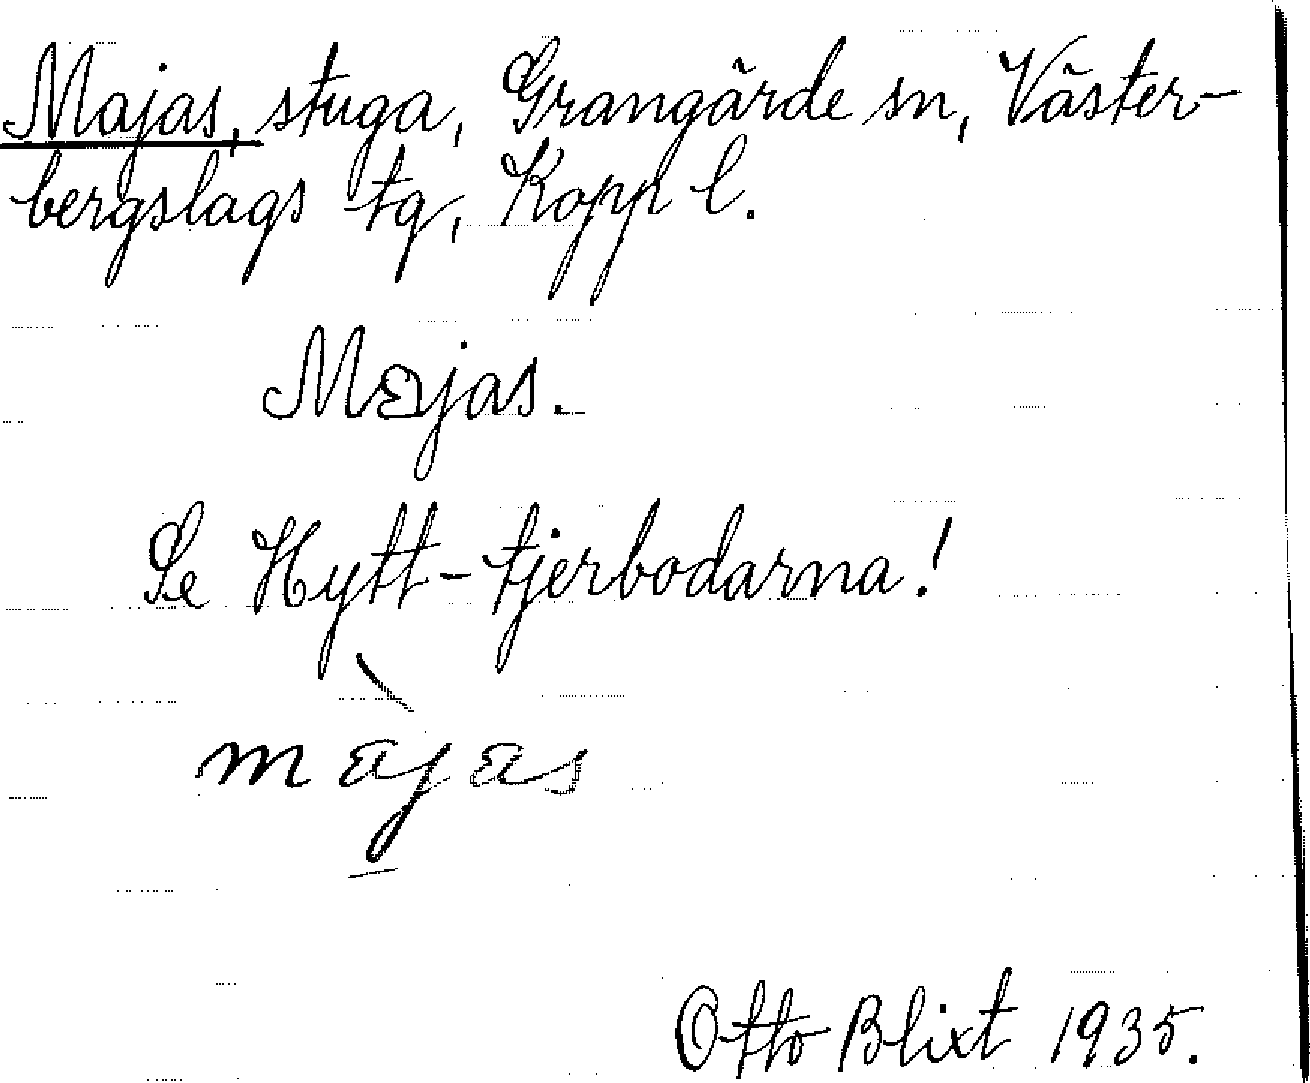 Majas, stuga, Grangärde sn, Väster-
bergslags tg, Kopp l.
Majas.
Se Hytt-tjerbodarna!
majas
Otto Blixt 1935.